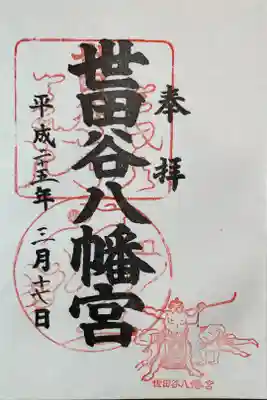 奉拝
世田谷八幡宮
平成二十五年 三月十六日
世田谷八幡宮